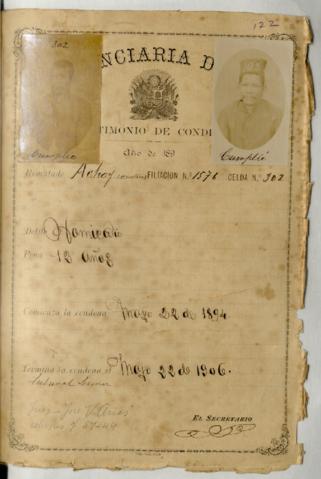 122
302
NCIARIA D
TIMONIO DE CONDE
Año de 189
Cumplió
Cumplió
Rematado Achoy FILIACION N.º 1576 CELDA N.º 302
Delito Homicidio
Pena 12 años
Comienza la condena Mayo 22 de 1894
Termina la condena el Mayo 22 de 1906.
EL SECRETARIO